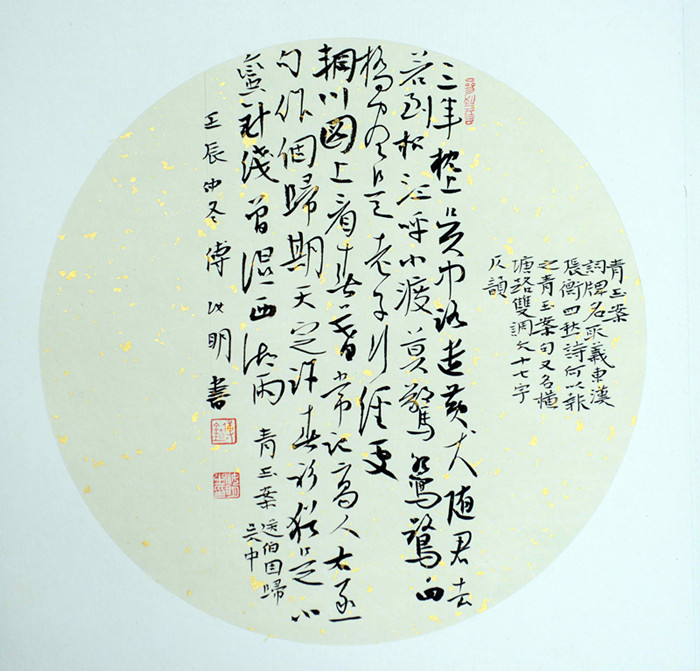 青玉案
詞牌名取義東漢
張衡四愁詩何以報
之青玉案句又名橫
塘路雙調六十七字
仄韻
三年枕上吳中路遣黃犬隨君去
若到松江呼小渡莫驚鴛鷺四
橋盡是老子行經處
輞川圖上看春暮常記高人右丞
句作個歸期天定許春衫猶是小
蠻針綫曾濕西湖雨
青玉案送伯固歸
吳中
壬辰仲冬傅明書